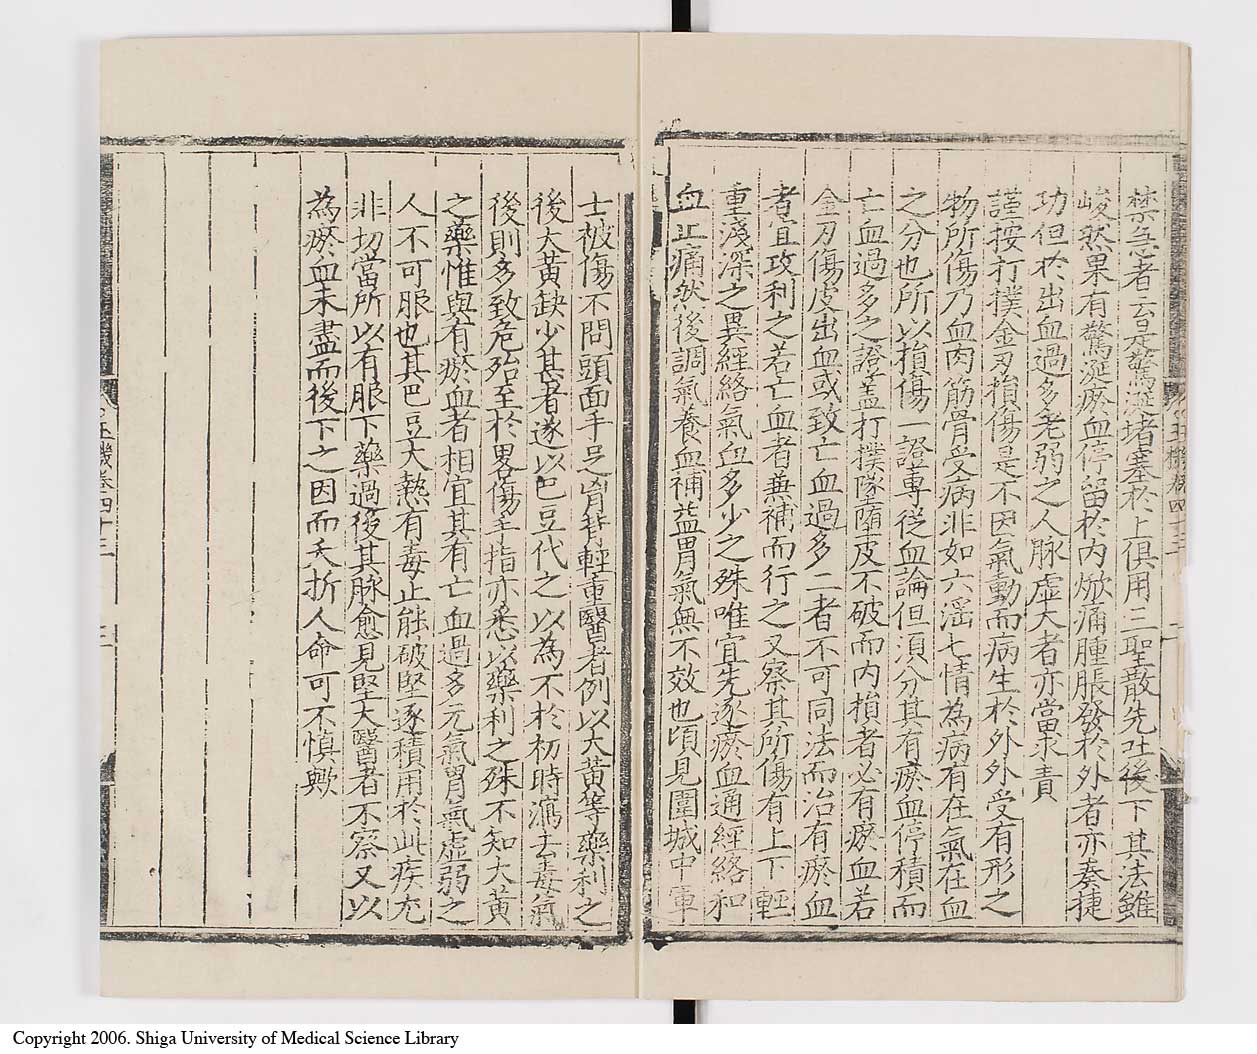 禁急者云是驚涎堵塞於上俱用三聖散先吐後下其法雖
峻然果有驚涎瘀血停留於內焮痛腫脹發於外者亦奏捷
功但於出血過多老弱之人脉虛大者亦當求責
謹按打撲金刃損傷是不因氣動而病生於外外受有形之
物所傷乃血肉筋骨受病非如六淫七情為病有在氣在血
之分也所以損傷一證專從血論但須分其有瘀血停積而
亡血過多之證蓋打撲墜墮皮不破而內損者必有瘀血若
金刃傷皮出血或致亡血過多二者不可同法而治有瘀血
者宜攻利之若亡血者兼補而行之又察其所傷有上下輕
重淺深之異經絡氣血多少之殊唯宜先逐瘀血通經絡和
血止痛然後調氣養血補益胃氣無不效也頃見圍城中軍
士被傷不問頭面手足胷背輕重醫者例以大黃等藥利之
後大黃缺少甚者遂以巴豆代之以為不於初時瀉去毒氣
後則多致危殆至於畧傷手指亦悉以藥利之殊不知大黃
之藥惟與有瘀血者相宜其有亡血過多元氣胃氣虛弱之
人不可服也其巴豆大熱有毒止能破堅逐積用於此疾尤
非切當所以有服下藥過後其脉愈見堅大醫者不察又以
為瘀血未盡而後下之因而夭折人命可不慎歟
玉機卷四十三
三
Copyright 2006. Shiga University of Medical Science Library